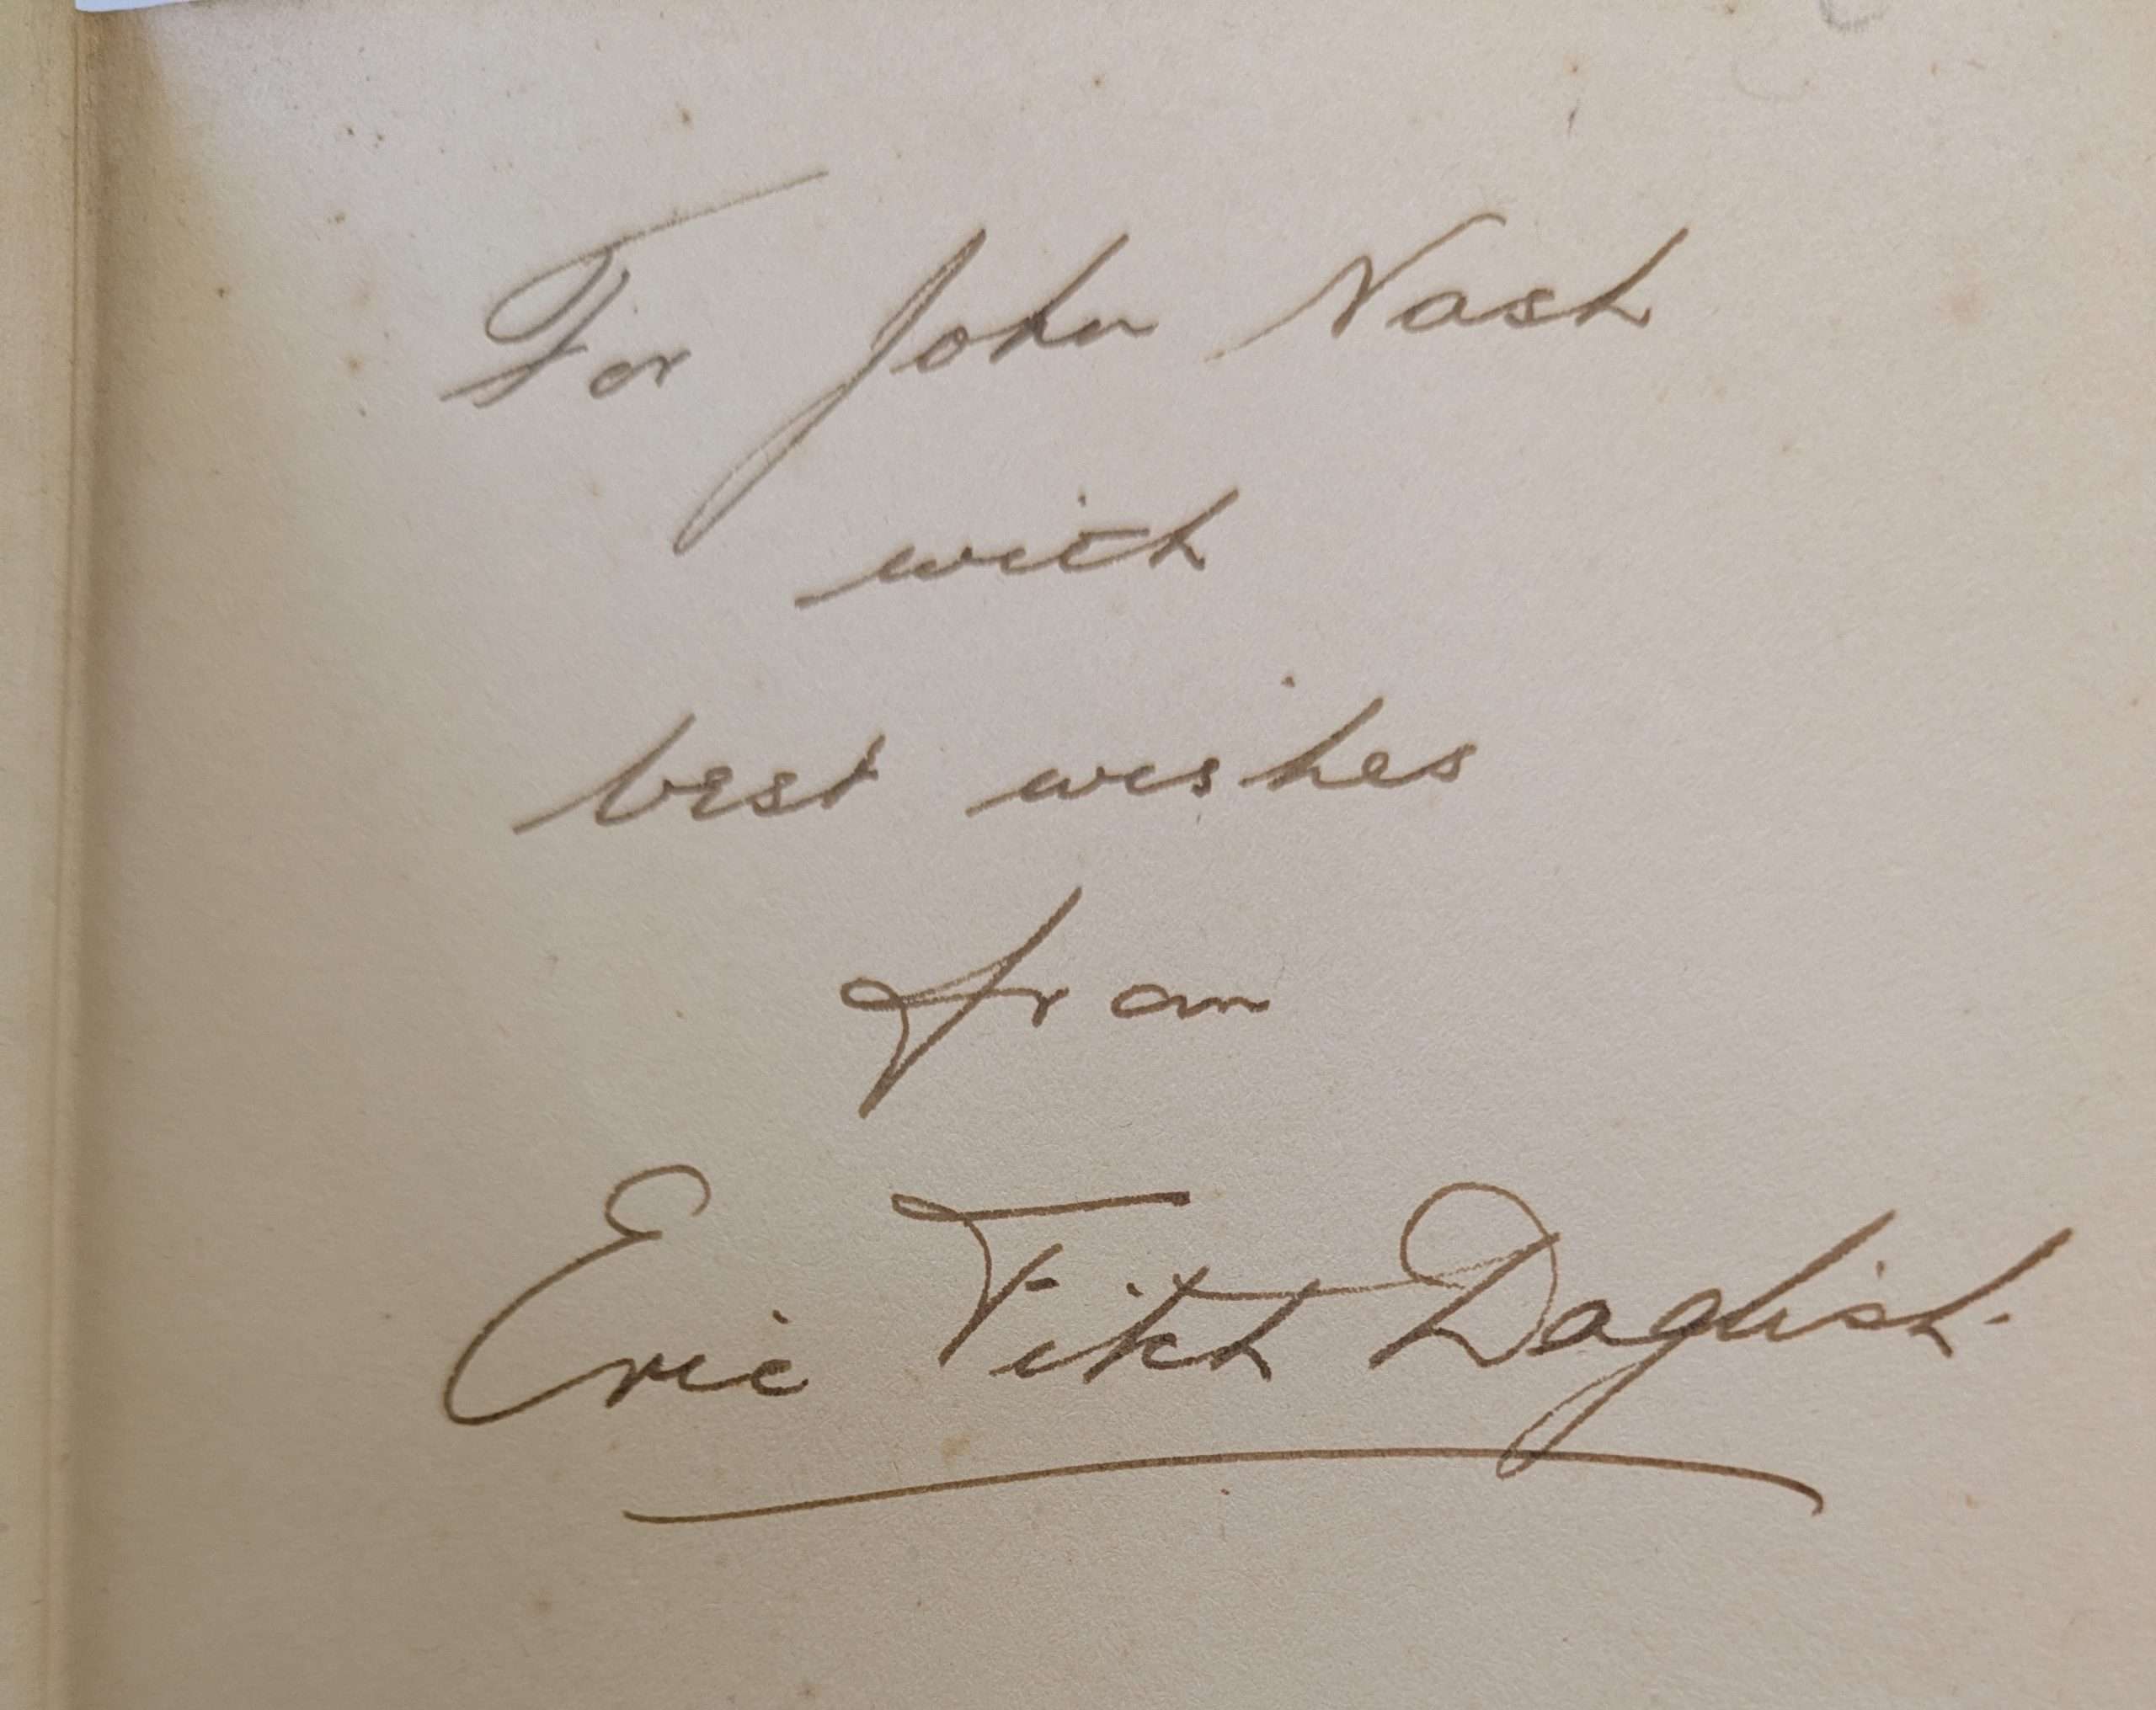 For John Nash
with
best wishes
from
Eric Fitch Daglish.